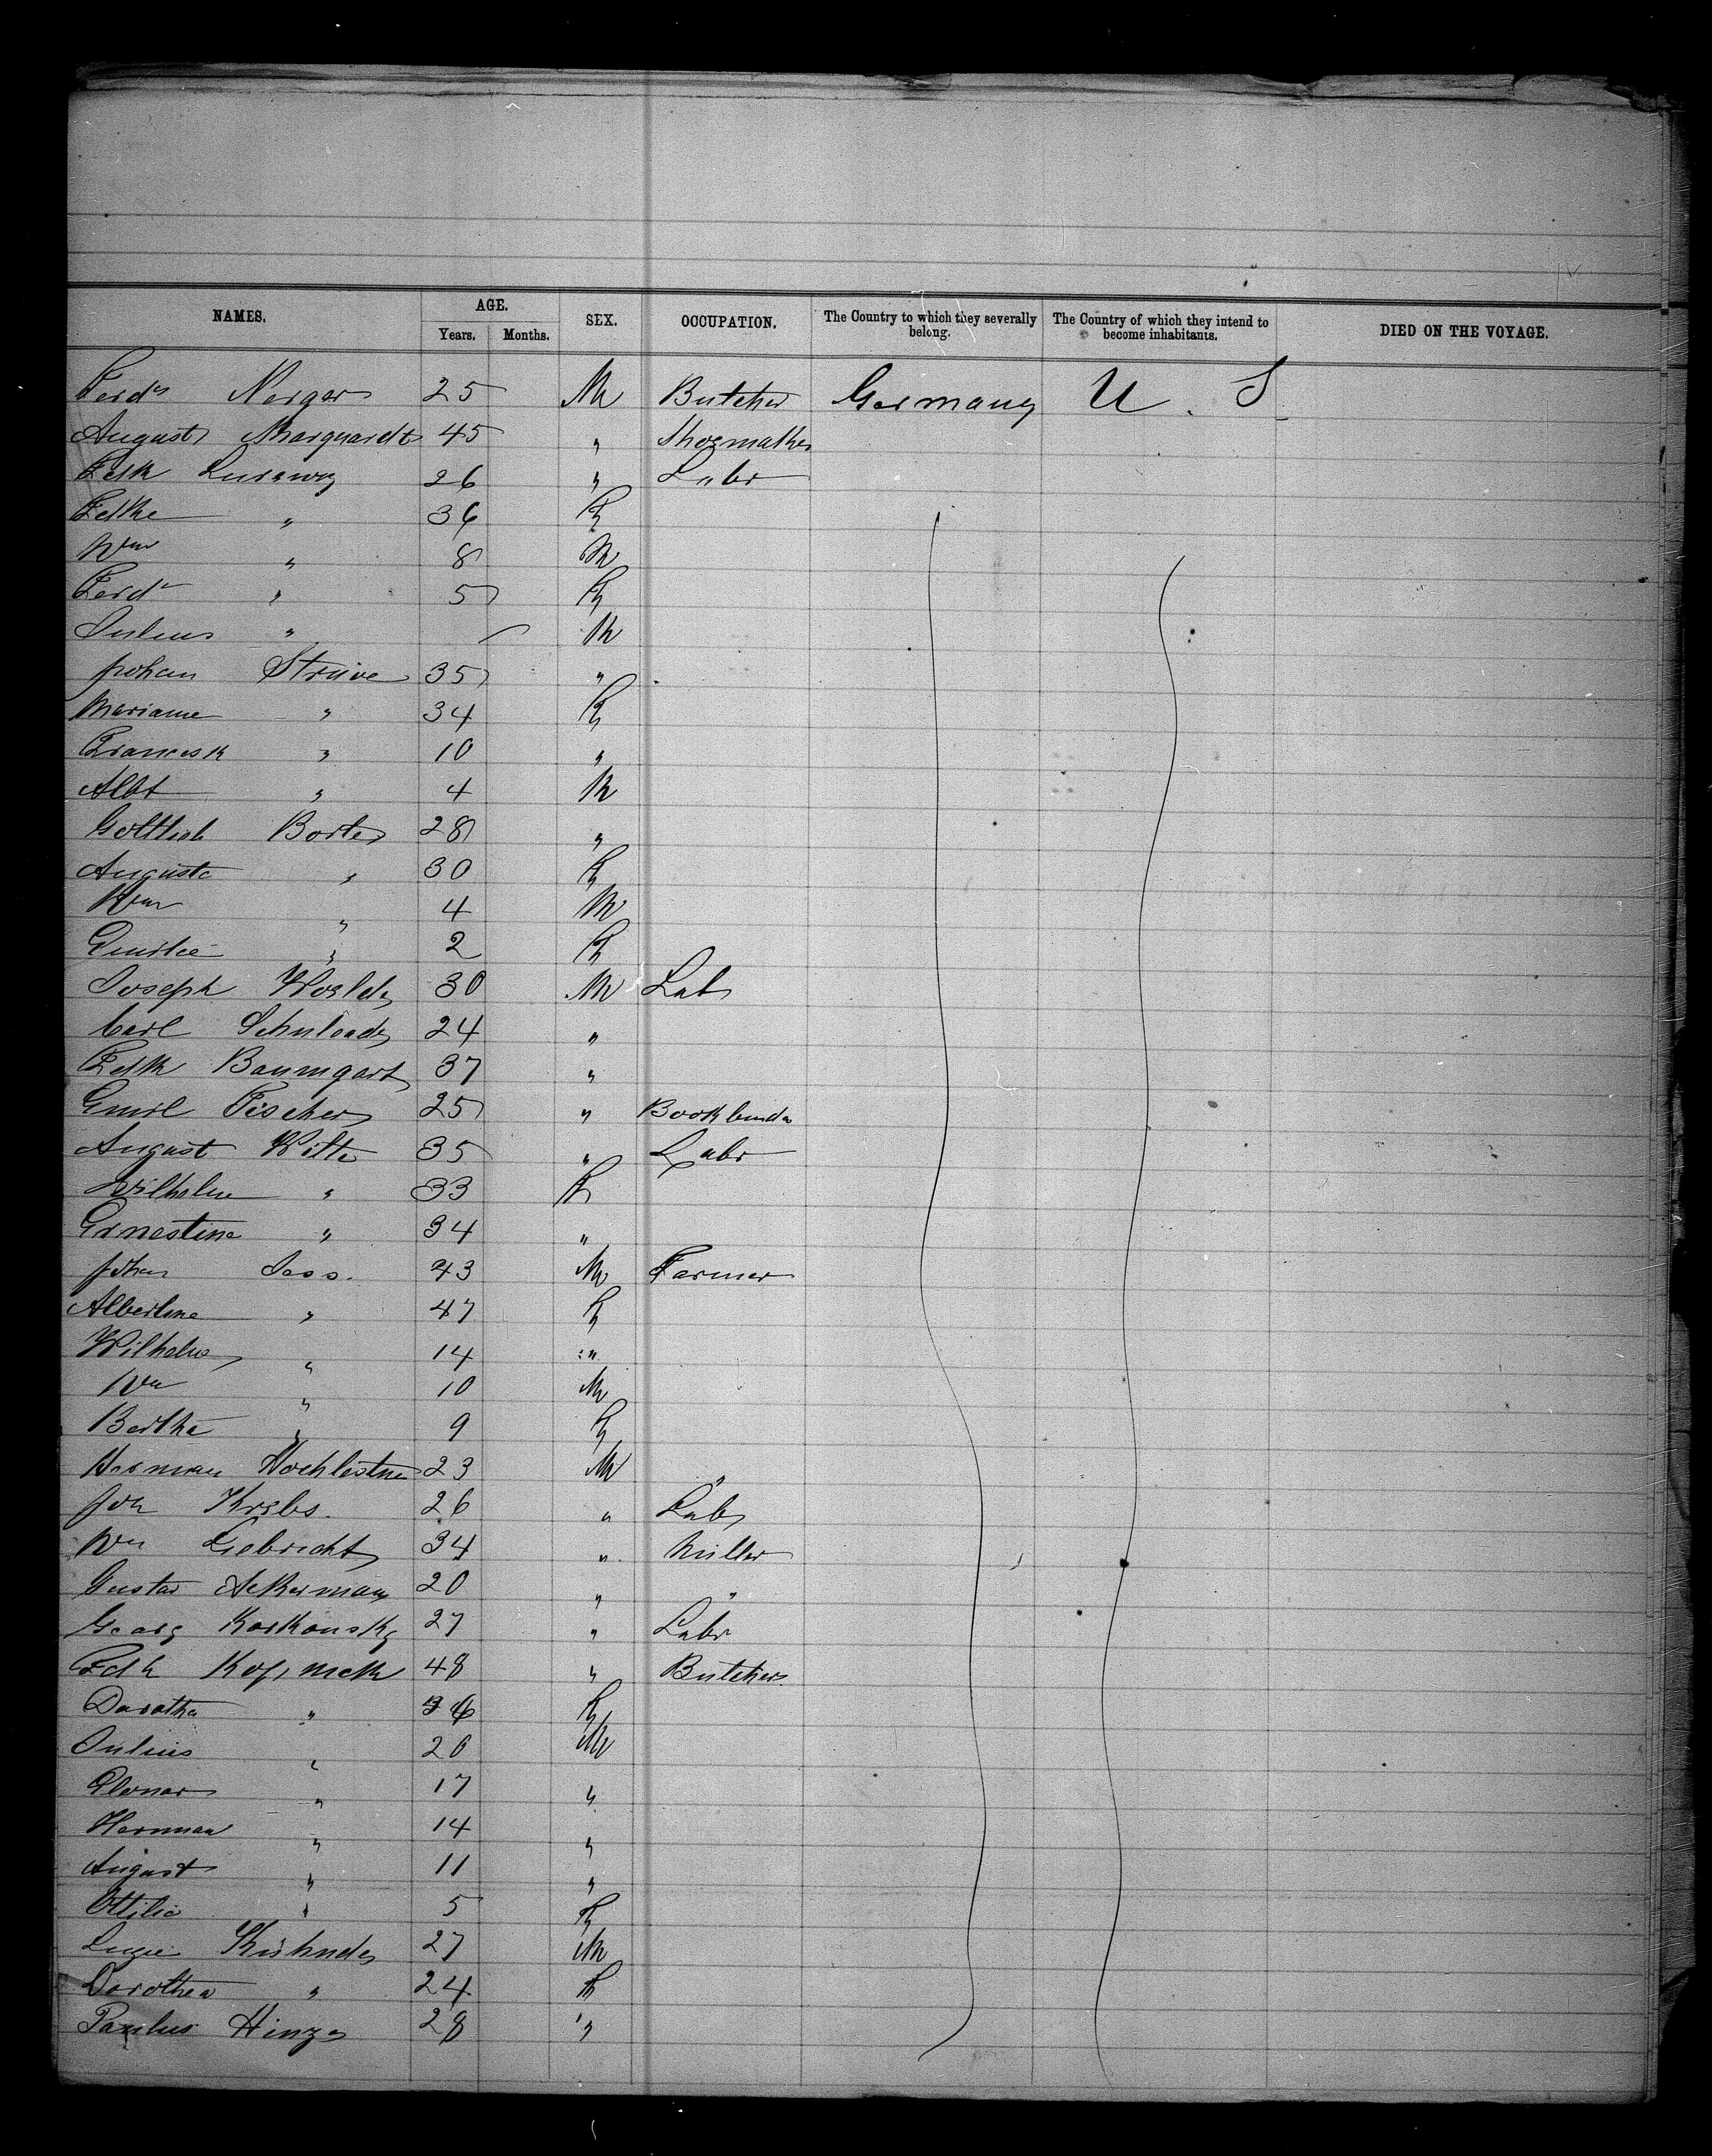 NAMES. AGE. SEX. OCCUPATION. The Country to which they severally belong. The Country of which they intend to become inhabitants. DIED ON THE VOYAGE.
Years. Months.
Ferdn Nerger 25 M Butcher Germany U. S
August Marquardt 45 " Shoemaker
Fdk 26 " Labr
Fdke " 36 F
Wm " 8 M
Ferd " 5 F
Julius " M
Johan Strüve 35 "
Mariane " 34 F
Francisk " 10 "
Albt " 4 M
Gottlieb Borter 28 "
Augusta " 30 F
Wm " 4 M
Emilie " 2 F
Joseph 30 M Lab
Carl 24 "
Fdk Baumgart 37 "
Emil Fischer 25 " Bookbinder
August Witte 35 " Labr
Wilhelm " 33 F
Ernestine " 34 "
Johan Sass. 43 M Farmer
Albertine " 47 F
Wilhelm " 14 "
Wm " 10 M
Bertha " 9 F
Herman 23 M "
Joh Krebs. 26 " Lab
Wm Liebricht 34 " Miller
Gustav Ackerman 20 " "
Georg Korkonsky 27 " Labr
Fdk 48 " Butcher
Doratha " F
Julius " 20 M
" 17 "
Herman " 14 "
August " 11 "
Ottilie " 5 F
27 M
Dorothea " 24 F
Paulus Hinze 28 "